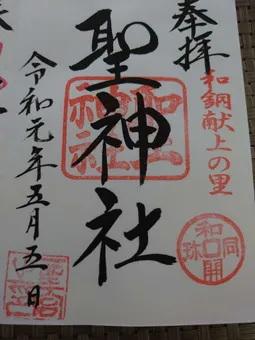 奉拝
和銅献上の里
和同開珎
聖神社
令和元年五月五日